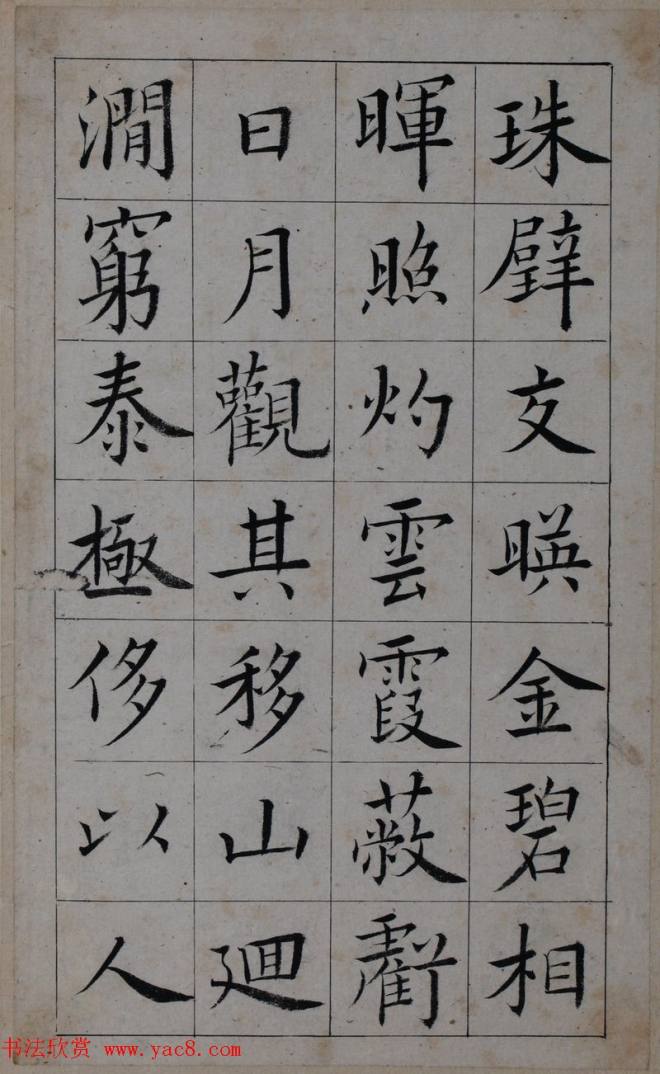 珠璧交暎金碧相
暉照灼雲霞蔽虧
日月觀其移山廻
澗窮泰極侈以人
书法欣赏 www.yac8.com